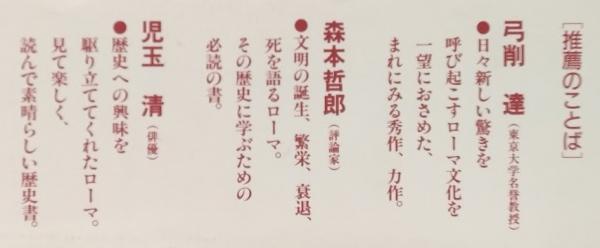 ［推薦のことば］
弓削 達（東京大学名誉教授）
●日々新しい驚きを
呼び起こすローマ文化を
一望におさめた、
まれにみる秀作、力作。
森本哲郎（評論家）
●文明の誕生、繁栄、衰退、
死を語るローマ。
その歴史に学ぶための
必読の書。
児玉 清（俳優）
●歴史への興味を
駆り立ててくれたローマ。
見て楽しく、
読んで素晴らしい歴史書。